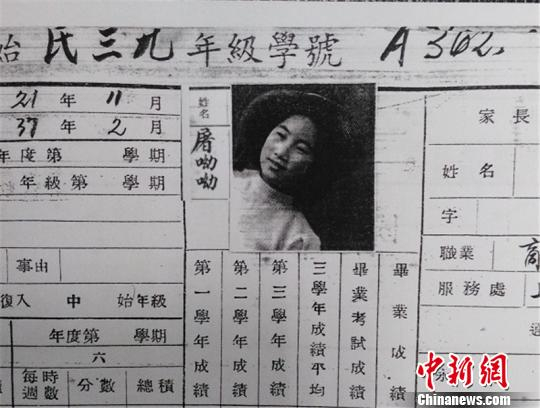 始 民三九 年級學號 A 302
21 年 11 月
37 年 2 月
年度第 學期
年級第 學期
姓名
屠呦呦
家長
姓名
字
職業 商
服務處
事由
復入 中 始年級
年度第 學期
六
每週時數 分數 總積
第一學年成績
第二學年成績
第三學年成績
三學年成績平均
畢業考試成績
畢業成績
中新网
Chinanews.com